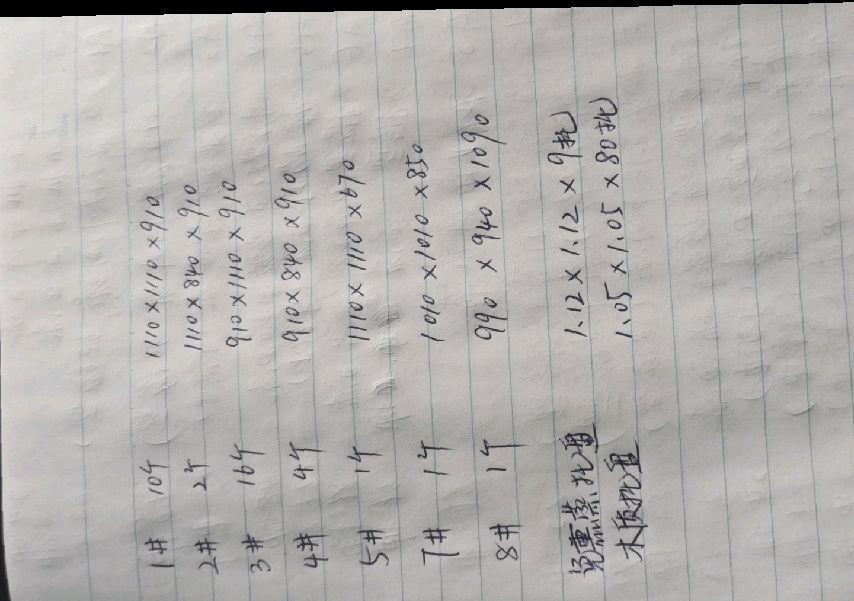 1# 10个 1110×1110×910
2# 2个 1110×840×910
3# 16个 910×1110×910
4# 4个 910×840×910
5# 1个 1110×1110×670
7# 1个 1010×1010×850
8# 1个 990×940×1090
熏蒸托盘 1.12×1.12×9托
木板托盘 1.05×1.05×80托